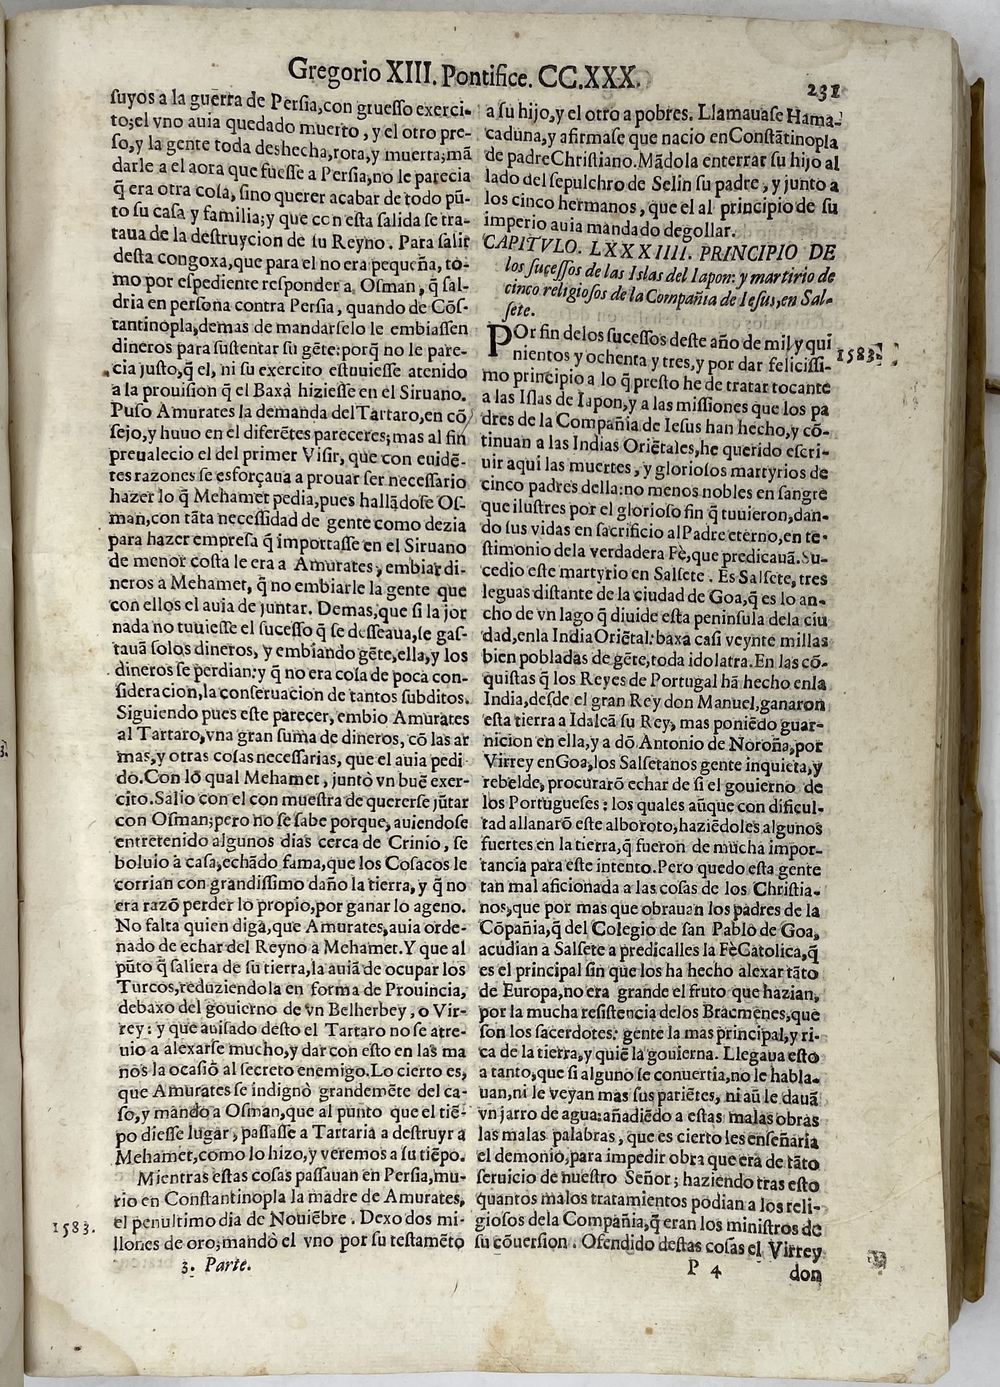 Gregorio XIII. Pontifice. CC.XXX.
231
ſuyos a la guerra de Perſia, con grueſſo exerci-
to; el vno auia quedado muerto, y el otro pre-
ſo, y la gente toda deshecha, rota, y muerta; mā
darle a el aora que fueſſe a Perſia, no le parecia
q̄ era otra coſa, ſino querer acabar de todo pū-
to ſu caſa y familia; y que con eſta ſalida ſe tra-
taua de la deſtruycion de ſu Reyno. Para ſalir
deſta congoxa, que para el no era pequeña, to-
mo por eſpediente reſponder a Oſman, q̄ ſal-
dria en perſona contra Perſia, quando de Cōſ-
tantinopla, demas de mandarſelo le embiaſſen
dineros para ſuſtentar ſu gēte: porq̄ no le pare-
cia juſto, q̄ el, ni ſu exercito eſtuuieſſe atenido
a la prouiſion q̄ el Baxà hizieſſe en el Siruano.
Puſo Amurates la demanda del Tartaro, en cō
ſejo, y huuo en el diferētes pareceres; mas al fin
preualecio el del primer Viſir, que con euidē-
tes razones ſe esforçaua a prouar ſer neceſſario
hazer lo q̄ Mehamet pedia, pues hallādoſe Oſ-
man, con tāta neceſſidad de gente como dezia
para hazer empreſa q̄ importaſſe en el Siruano
de menor coſta le era a Amurates, embiar di-
neros a Mehamet, q̄ no embiarle la gente que
con ellos el auia de juntar. Demas, que ſi la jor
nada no tuuieſſe el ſuceſſo q̄ ſe deſſeaua, ſe gaſ-
tauā ſolos dineros, y embiando gēte, ella, y los
dineros ſe perdian: y q̄ no era coſa de poca con-
ſideracion, la conſeruacion de tantos ſubditos.
Siguiendo pues eſte parecer, embio Amurates
al Tartaro, vna gran ſuma de dineros, cō las ar
mas, y otras coſas neceſſarias, que el auia pedi
do. Con lo qual Mehamet, juntò vn buē exer-
cito. Salio con el con mueſtra de quererſe jūtar
con Oſman; pero no ſe ſabe porque, auiendoſe
entretenido algunos dias cerca de Crinio, ſe
boluio a caſa, echādo fama, que los Coſacos le
corrian con grandiſſimo daño la tierra, y q̄ no
era razō perder lo propio, por ganar lo ageno.
No falta quien diga, que Amurates, auia orde-
nado de echar del Reyno a Mehamet. Y que al
pūto q̄ ſaliera de ſu tierra, la auiā de ocupar los
Turcos, reduziendola en forma de Prouincia,
debaxo del gouierno de vn Belherbey, o Vir-
rey: y que auiſado deſto el Tartaro no ſe atre-
uio a alexarſe mucho, y dar con eſto en las ma
nos la ocaſiō al ſecreto enemigo. Lo cierto es,
que Amurates ſe indignò grandemēte del ca-
ſo, y mandò a Oſman, que al punto que el tiē-
po dieſſe lugar, paſſaſſe a Tartaria a deſtruyr a
Mehamet, como lo hizo, y veremos a ſu tiēpo.
Mientras eſtas coſas paſſauan en Perſia, mu-
rio en Conſtantinopla la madre de Amurates,
1583.
el penultimo dia de Nouiēbre. Dexo dos mi-
llones de oro; mandò el vno por ſu teſtamēto
3. Parte.
a ſu hijo, y el otro a pobres. Llamauaſe Hama-
caduna, y afirmaſe que nacio en Conſtātinopla
de padre Chriſtiano. Mādola enterrar ſu hijo al
lado del ſepulchro de Selin ſu padre, y junto a
los cinco hermanos, que el al principio de ſu
imperio auia mandado degollar.
CAPITVLO. LXXXIIII. PRINCIPIO DE
los ſuceſſos de las Islas del Iapon: y martirio de
cinco religioſos de la Compañia de Ieſus, en Sal-
ſete.
POr fin delos ſuceſſos deſte año de mil y qui
1583.
nientos y ochenta y tres, y por dar feliciſſi-
mo principio a lo q̄ preſto he de tratar tocante
a las Iſlas de Iapon, y a las miſſiones que los pa
dres de la Compañia de Ieſus han hecho, y cō-
tinuan a las Indias Oriētales, he querido eſcri-
uir aqui las muertes, y glorioſos martyrios de
cinco padres della: no menos nobles en ſangre
que iluſtres por el glorioſo fin q̄ tuuieron, dan-
do ſus vidas en ſacrificio al Padre eterno, en te-
ſtimonio dela verdadera Fè, que predicauā. Su-
cedio eſte martyrio en Salſete. Es Salſete, tres
leguas diſtante de la ciudad de Goa, q̄ es lo an-
cho de vn lago q̄ diuide eſta peninſula dela ciu
dad, enla India Oriētal: baxa caſi veynte millas
bien pobladas de gēte, toda idolatra. En las cō-
quiſtas q̄ los Reyes de Portugal hā hecho enla
India, deſde el gran Rey don Manuel, ganaron
eſta tierra a Idalcā ſu Rey, mas poniēdo guar-
nicion en ella, y a dō Antonio de Noroña, por
Virrey en Goa, los Salſetanos gente inquieta, y
rebelde, procurarō echar de ſi el gouierno de
los Portugueſes: los quales aūque con dificul-
tad allanarō eſte alboroto, haziēdoles algunos
fuertes en la tierra, q̄ fueron de mucha impor-
tancia para eſte intento. Pero quedo eſta gente
tan mal aficionada a las coſas de los Chriſtia-
nos, que por mas que obrauan los padres de la
Cōpañia, q̄ del Colegio de ſan Pablo de Goa,
acudian a Salſete a predicalles la Fè Catolica, q̄
es el principal fin que los ha hecho alexar tāto
de Europa, no era grande el fruto que hazian,
por la mucha reſiſtencia delos Bracmenes, que
ſon los ſacerdotes: gente la mas principal, y ri-
ca de la tierra, y quiē la gouierna. Llegaua eſto
a tanto, que ſi alguno ſe conuertia, no le habla-
uan, ni le veyan mas ſus pariētes, ni aū le dauā
vn jarro de agua: añadiēdo a eſtas malas obras
las malas palabras, que es cierto les enſeñaria
el demonio, para impedir obra que era de tāto
ſeruicio de nueſtro Señor; haziendo tras eſto
quantos malos tratamientos podian a los reli-
gioſos dela Compañia, q̄ eran los miniſtros de
ſu cōuerſion. Ofendido deſtas coſas el Virrey
P 4
don